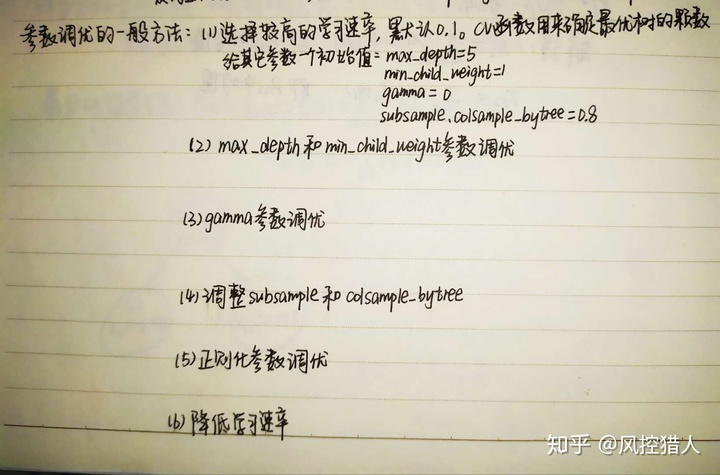 参数调优的一般方法：(1)选择较高的学习速率，默认0.1。CV函数用来确定最优树的颗数
给其它参数一个初始值：max_depth=5
min_child_weight=1
gamma=0
subsample、colsample_bytree=0.8
(2) max_depth和min_child_weight参数调优
(3)gamma参数调优
(4)调整subsample和colsample_bytree
(5)正则化参数调优
(6)降低学习速率
知乎 @风控猎人